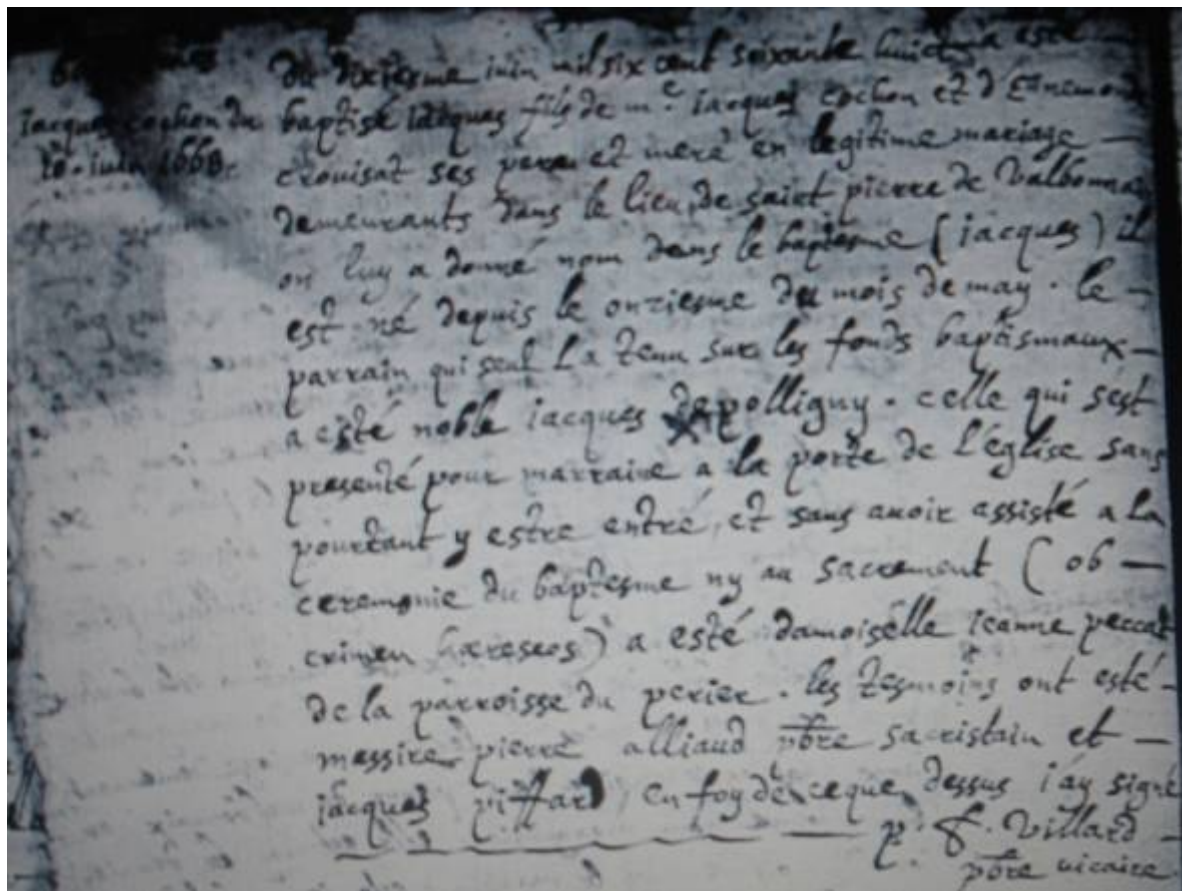 jacques cochon du
10 juin 1668
du dixiesme iuin mil six cent soixante huict a esté
baptisé iacques fils de mᵉ iacques cochon et d Ennemonde
crouisat ses pere et mere en legitime mariage —
demeurants dans le lieu de saint pierre de Valbonnay
on luy a donné nom dans le baptesme (jacques) il
est né depuis le onziesme du mois de may. le —
parrain qui seul la tenu sur les fonds baptismaux —
a esté noble iacques de polligny. celle qui s'est
presenté pour marraine a la porte de l'église sans
pourtant y estre entré, et sans auoir assisté a la
ceremonie du baptesme ny au sacrement (ob —
crimen hæreseos) a esté damoiselle ieanne peccat
de la parroisse du perier. les tesmoins ont esté —
messire pierre alliaud pbre sacristain et —
jacques piffard en foy de ce que dessus i'ay signé
p. f. Villard —
pbre uicaire